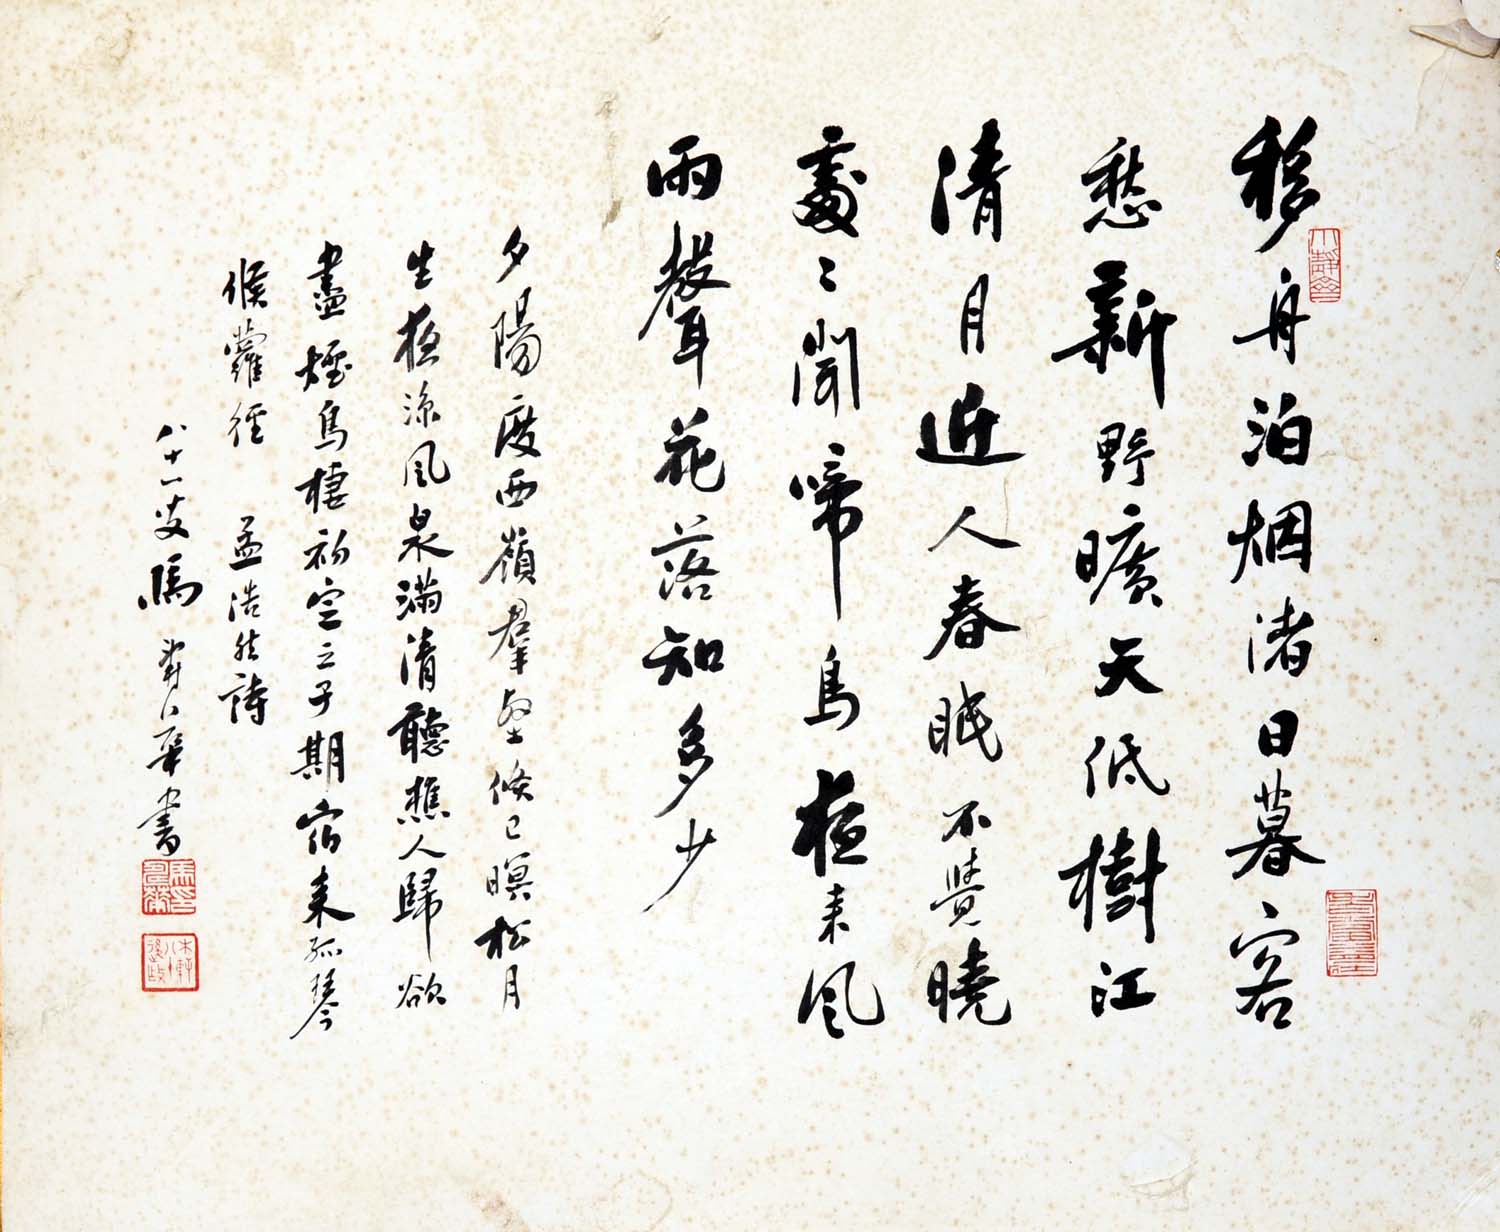 移舟泊烟渚日暮客
愁新野曠天低樹江
清月近人春眠不覺曉
處〻聞啼鳥夜来風
雨聲花落知多少
夕陽度西嶺羣壑倏已暝松月
生夜涼風泉滿清聽樵人歸欲
盡煙鳥棲初定之子期宿来孤琴
候蘿徑 孟浩然詩
八十一叟馬壽華書